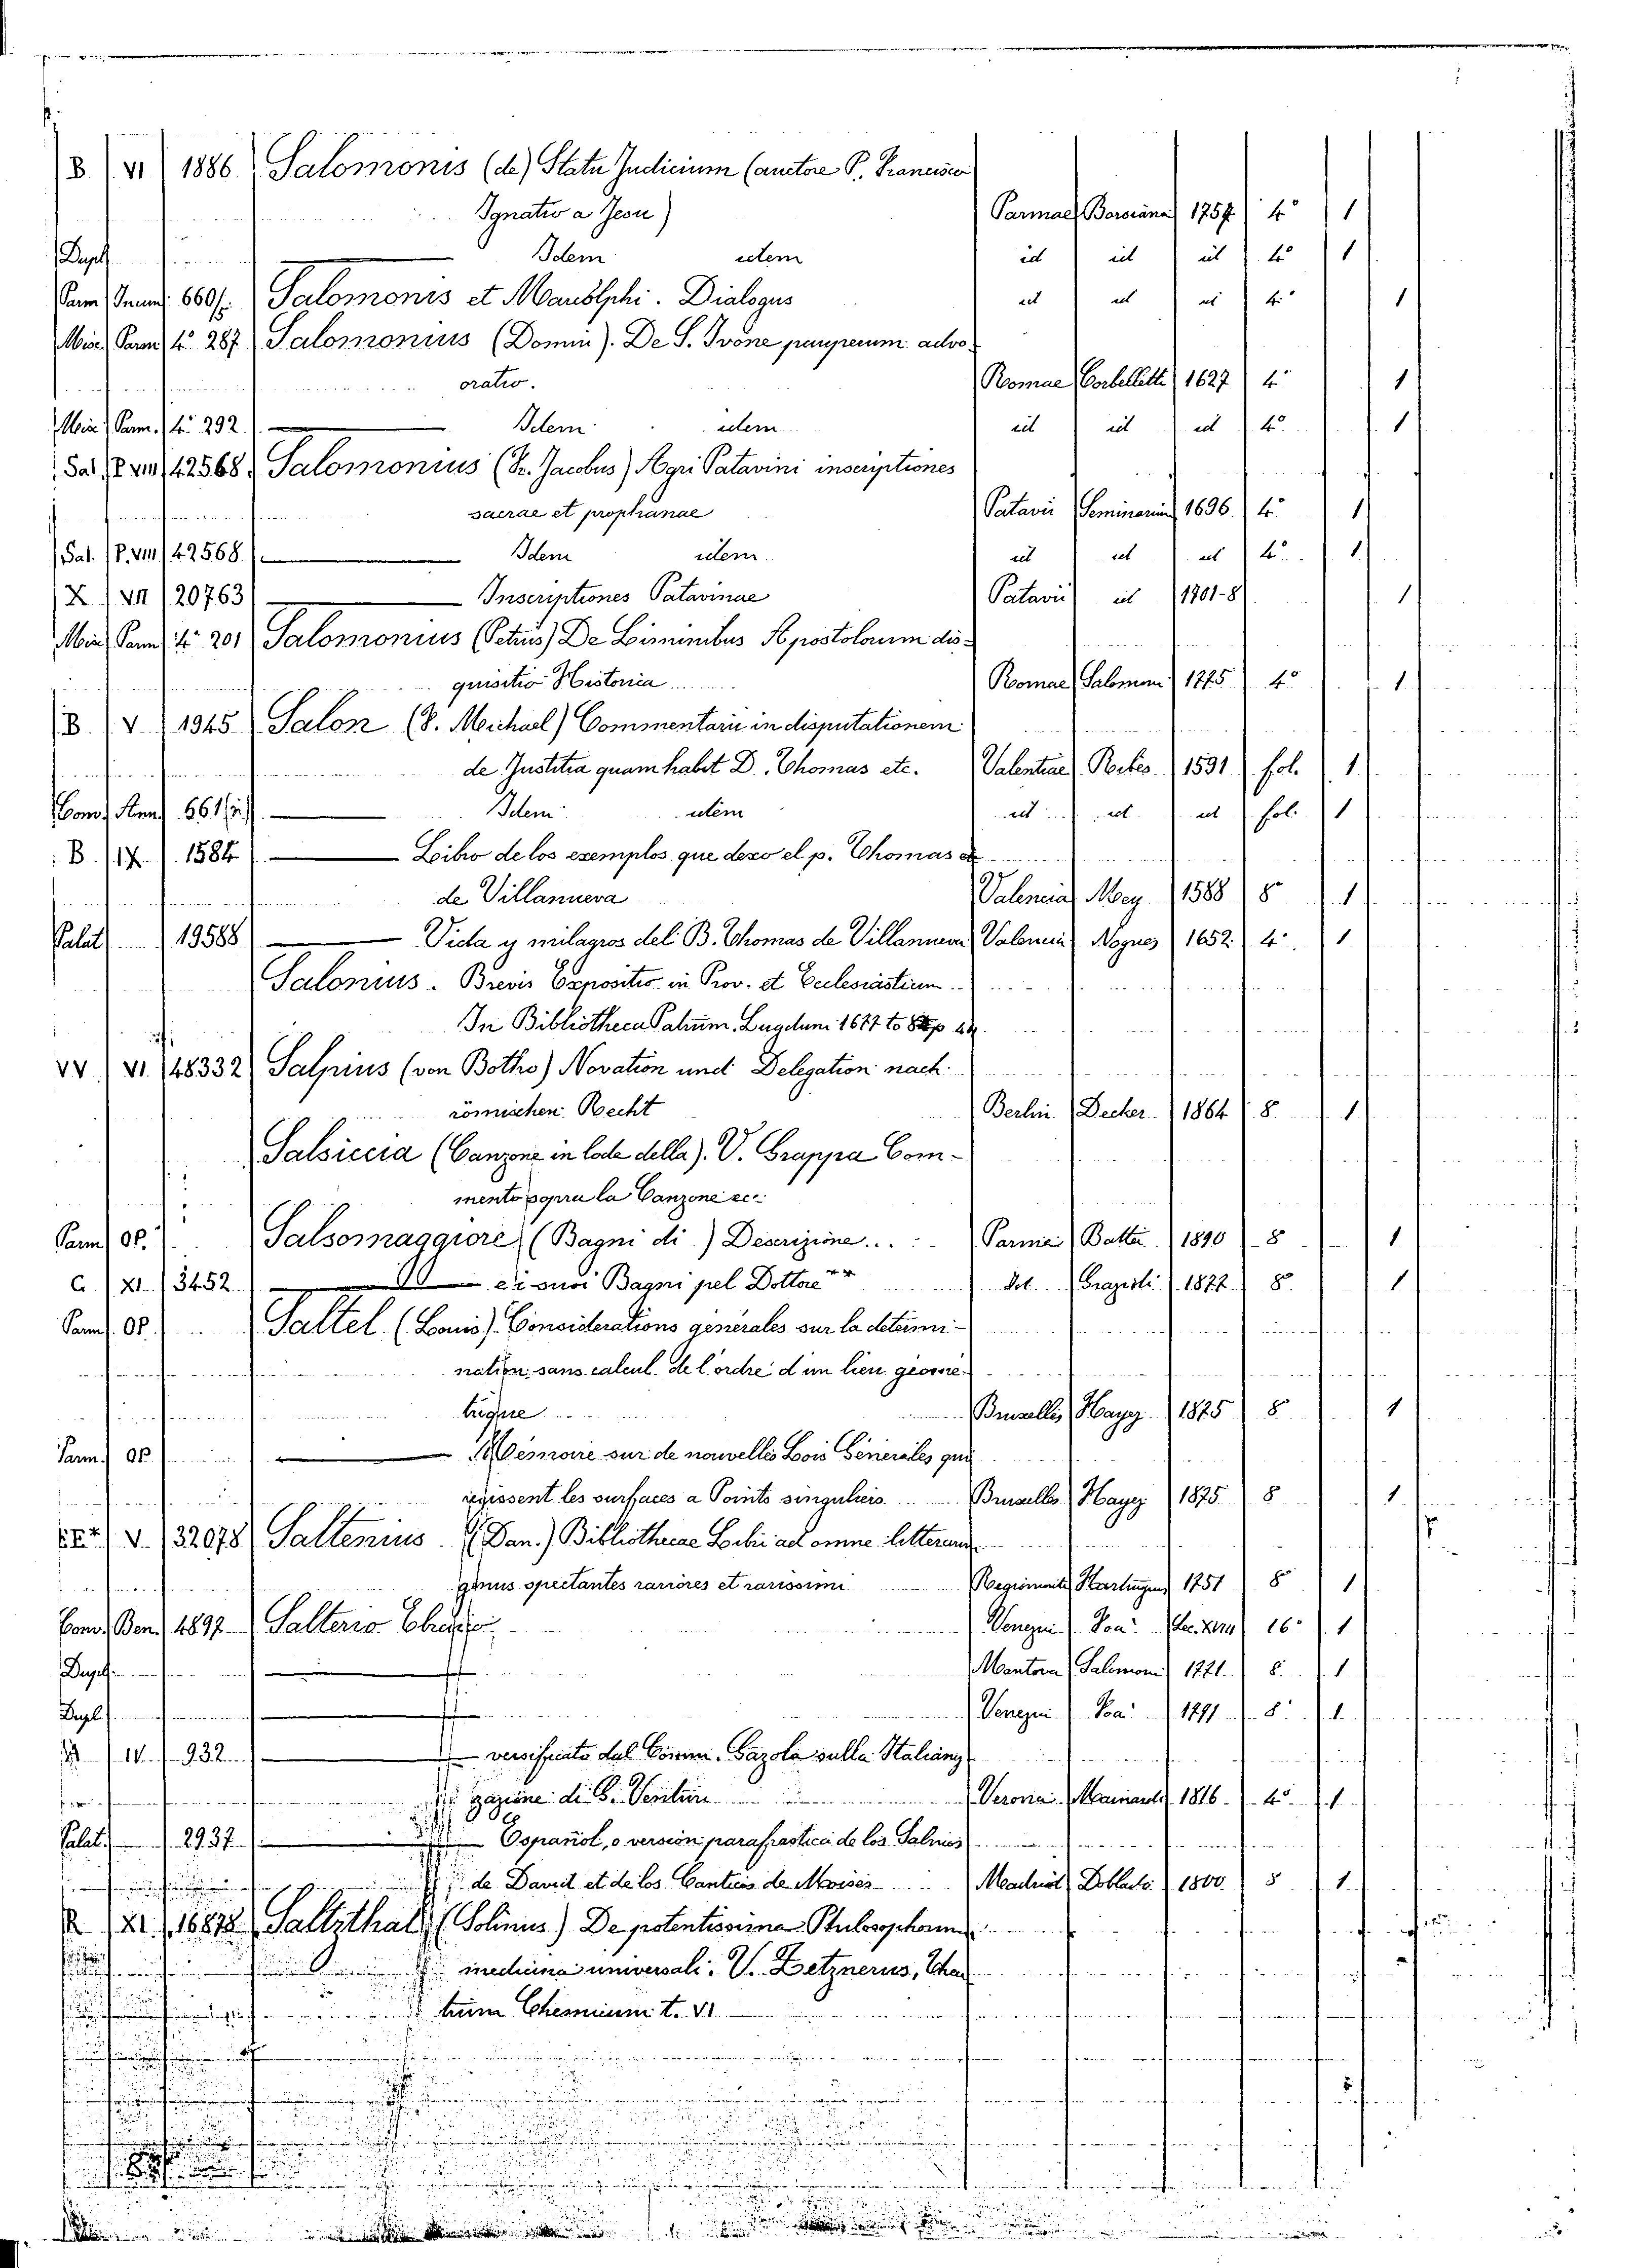 B VI 1886. Salomonis (de) Statu Judicium (auctore P. Francisco
Ignatio a Jesu) Parmae Borsiana 1757 4° 1
Dupl. Idem idem id id id 4° 1
Parm. 660 Salomonis et Marcolphi. Dialogus id id id 4° 1
Misc. Parm. 4° 287 Salomonius (Domin). De S. Ivone pauperum advo.
oratio. Romae Corbelletti 1627 4° 1
Misc. Parm. 4° 292 Idem idem id id id 4° 1
Sal. P. VIII 42568 Salomonius (Fr. Jacobus) Agri Patavini inscriptiones
sacrae et prophanae Patavii Seminarium 1696. 4° 1
Sal. P. VIII 42568 Idem idem id id id 4° 1
X VII 20763 Inscriptiones Patavinae Patavii id 1701-8 1
Misc. Parm. 4° 201 Salomonius (Petrus) De Liminibus Apostolorum dis-
quisitio Historica Romae Salomoni 1775 4° 1
B. V 1945 Salon (F. Michael) Commentarii in disputationem
de Justitia quam habet D. Thomas etc. Valentiae 1591 fol. 1
Conv. Ann. 661 Idem idem id id id fol. 1
B. IX. 1584 Libro de los exemplos que dexo el p. Thomas
de Villanueva Valencia Mey. 1588 8° 1
Palat. 19588 Vida y milagros del B. Thomas de Villanueva Valencia Nogues 1652. 4° 1
Salonius. Brevis Expositio in Prov. et Ecclesiasticum.
In Bibliotheca Patrum. Lugduni 1677 to 8
VV VI. 48332 Salpius (von Botho) Novation und Delegation nach
römischen Recht Berlin Decker 1864 8. 1
Salsiccia (Canzone in lode della). V. Grappa Com-
mento sopra la Canzone ecc.
Parm. OP. Salsomaggiore (Bagni di) Descrizione... Parma Battei 1890 8 1
C XI. 3452 e i suoi Bagni pel Dottore ** Grazioli 1877 8° 1
Parm. OP. Saltel (Louis). Considerations générales sur la détermi-
nation sans calcul de l'ordre d'un lieu géomé-
trique Bruxelles Hayez 1875 8 1
Parm. OP. Mémoire sur de nouvelles Lois Générales qui
régissent les surfaces a Points singuliers Bruxelles Hayez 1875 8 1
V. 32078 Saltenius (Dan.) Bibliothecae Libri ad omne litterarum
genus spectantes rariores et rarissimi Regiomonti Hartungeus 1751 8° 1
Conv. Ben. 4897 Salterio Venezia Sec. XVIII 16° 1.
Dupl. Mantova Salomoni 1771 8. 1.
Dupl. Venezia 1791 8° 1
IV. 932 versificato dal Comm. Gazola sulla Italianiz-
zazione di G. Venturi Verona Mainardi 1816. 4° 1
Palat. 2937 Español, o version parafrastica de los Salmos
de David et de los Canticos de Moises Madrid Doblado 1800. 8 1.
R XI. 16878 Saltzthal (Solinus) De potentissima Philosophorum
medicina universali. V. Zetznerus, Thea
trum Chemicum t. VI